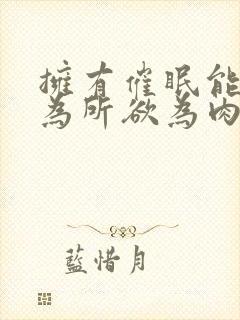 擁有催眠能
為所欲為肉
藍惜月